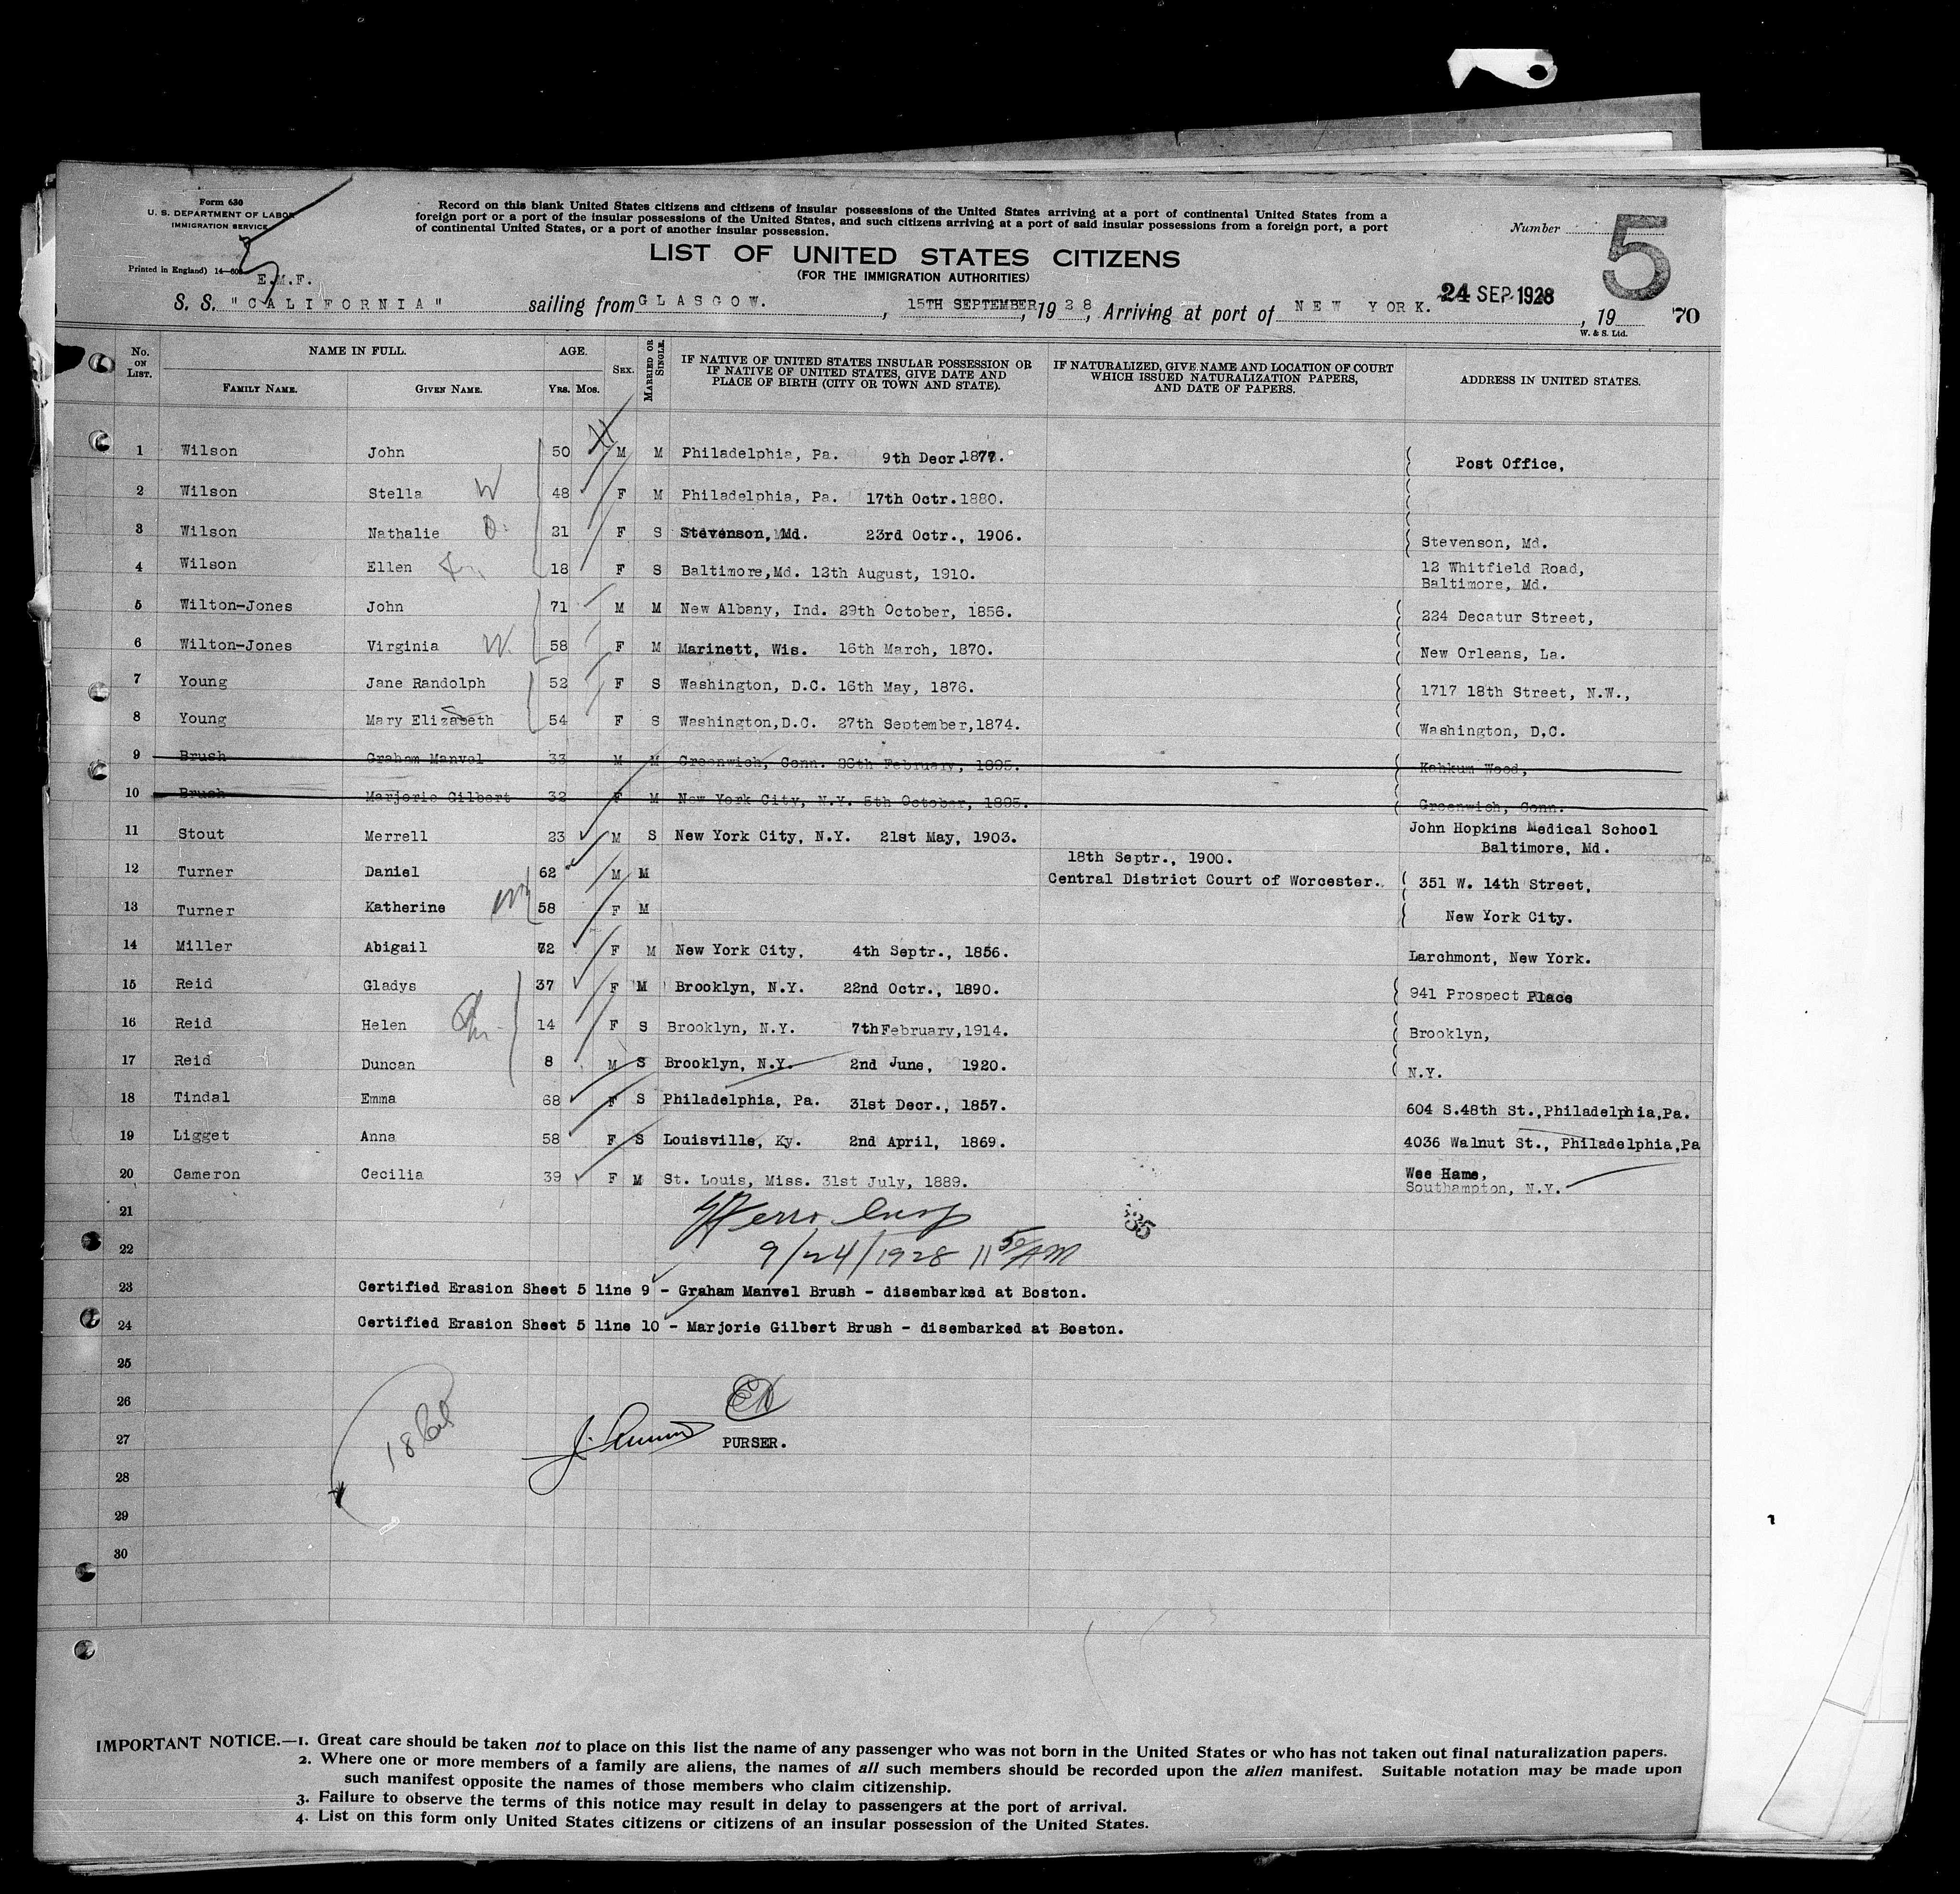 Form 630
U. S. DEPARTMENT OF LABOR
IMMIGRATION SERVICE
Printed in England) 14—
Record on this blank United States citizens and citizens of insular possessions of the United States arriving at a port of continental United States from a
foreign port or a port of the insular possessions of the United States, and such citizens arriving at a port of said insular possessions from a foreign port, a port
of continental United States, or a port of another insular possession.
Number 5
LIST OF UNITED STATES CITIZENS
(FOR THE IMMIGRATION AUTHORITIES)
E.M.F.
S. S. "CALIFORNIA" sailing from GLASGOW. , 15TH SEPTEMBER, 1928, Arriving at port of NEW YORK. 24 SEP 1928, 19 70
W. & S. Ltd.
No. ON LIST. NAME IN FULL. AGE. SEX. MARRIED OR SINGLE. IF NATIVE OF UNITED STATES INSULAR POSSESSION OR IF NATIVE OF UNITED STATES, GIVE DATE AND PLACE OF BIRTH (CITY OR TOWN AND STATE). IF NATURALIZED, GIVE NAME AND LOCATION OF COURT WHICH ISSUED NATURALIZATION PAPERS, AND DATE OF PAPERS. ADDRESS IN UNITED STATES.
FAMILY NAME. GIVEN NAME. YRS. MOS.
1 Wilson John 50 M M Philadelphia, Pa. 9th Decr.1877. Post Office,
2 Wilson Stella W 48 F M Philadelphia, Pa. 17th Octr.1880.
3 Wilson Nathalie D. 21 F S Stevenson, Md. 23rd Octr., 1906. Stevenson, Md.
4 Wilson Ellen 18 F S Baltimore,Md. 12th August, 1910. 12 Whitfield Road,
Baltimore, Md.
5 Wilton-Jones John 71 M M New Albany, Ind. 29th October, 1856. 224 Decatur Street,
6 Wilton-Jones Virginia W. 58 F M Marinett, Wis. 16th March, 1870. New Orleans, La.
7 Young Jane Randolph 52 F S Washington, D.C. 16th May, 1876. 1717 18th Street, N.W.,
8 Young Mary Elizabeth 54 F S Washington,D.C. 27th September,1874. Washington, D.C.
9 Brush Graham Manvel 33 M M Greenwich, Conn. 26th February, 1895. Kahkum Wood,
10 Brush Marjorie Gilbert 32 F M New York City, N.Y. 5th October, 1895. Greenwich, Conn.
11 Stout Merrell 23 M S New York City, N.Y. 21st May, 1903. John Hopkins Medical School
Baltimore, Md.
18th Septr., 1900.
12 Turner Daniel 62 M M Central District Court of Worcester. 351 W. 14th Street,
13 Turner Katherine 58 F M New York City.
14 Miller Abigail 72 F M New York City, 4th Septr., 1856. Larchmont, New York.
15 Reid Gladys 37 F M Brooklyn, N.Y. 22nd Octr., 1890. 941 Prospect Place
16 Reid Helen 14 F S Brooklyn, N.Y. 7thFebruary,1914. Brooklyn,
17 Reid Duncan 8 M S Brooklyn, N.Y. 2nd June, 1920. N.Y.
18 Tindal Emma 68 F S Philadelphia, Pa. 31st Decr., 1857. 604 S.48th St.,Philadelphia,Pa.
19 Ligget Anna 58 F S Louisville, Ky. 2nd April, 1869. 4036 Walnut St., Philadelphia,Pa
20 Cameron Cecilia 39 F M St. Louis, Miss. 31st July, 1889. Wee Hame,
Southampton, N.Y.
21
22 9/24/1928 11 50 AM
23 Certified Erasion Sheet 5 line 9 - Graham Manvel Brush - disembarked at Boston.
24 Certified Erasion Sheet 5 line 10 - Marjorie Gilbert Brush - disembarked at Boston.
25
26
27 PURSER.
28
29
30
IMPORTANT NOTICE.—1. Great care should be taken not to place on this list the name of any passenger who was not born in the United States or who has not taken out final naturalization papers.
2. Where one or more members of a family are aliens, the names of all such members should be recorded upon the alien manifest. Suitable notation may be made upon
such manifest opposite the names of those members who claim citizenship.
3. Failure to observe the terms of this notice may result in delay to passengers at the port of arrival.
4. List on this form only United States citizens or citizens of an insular possession of the United States.